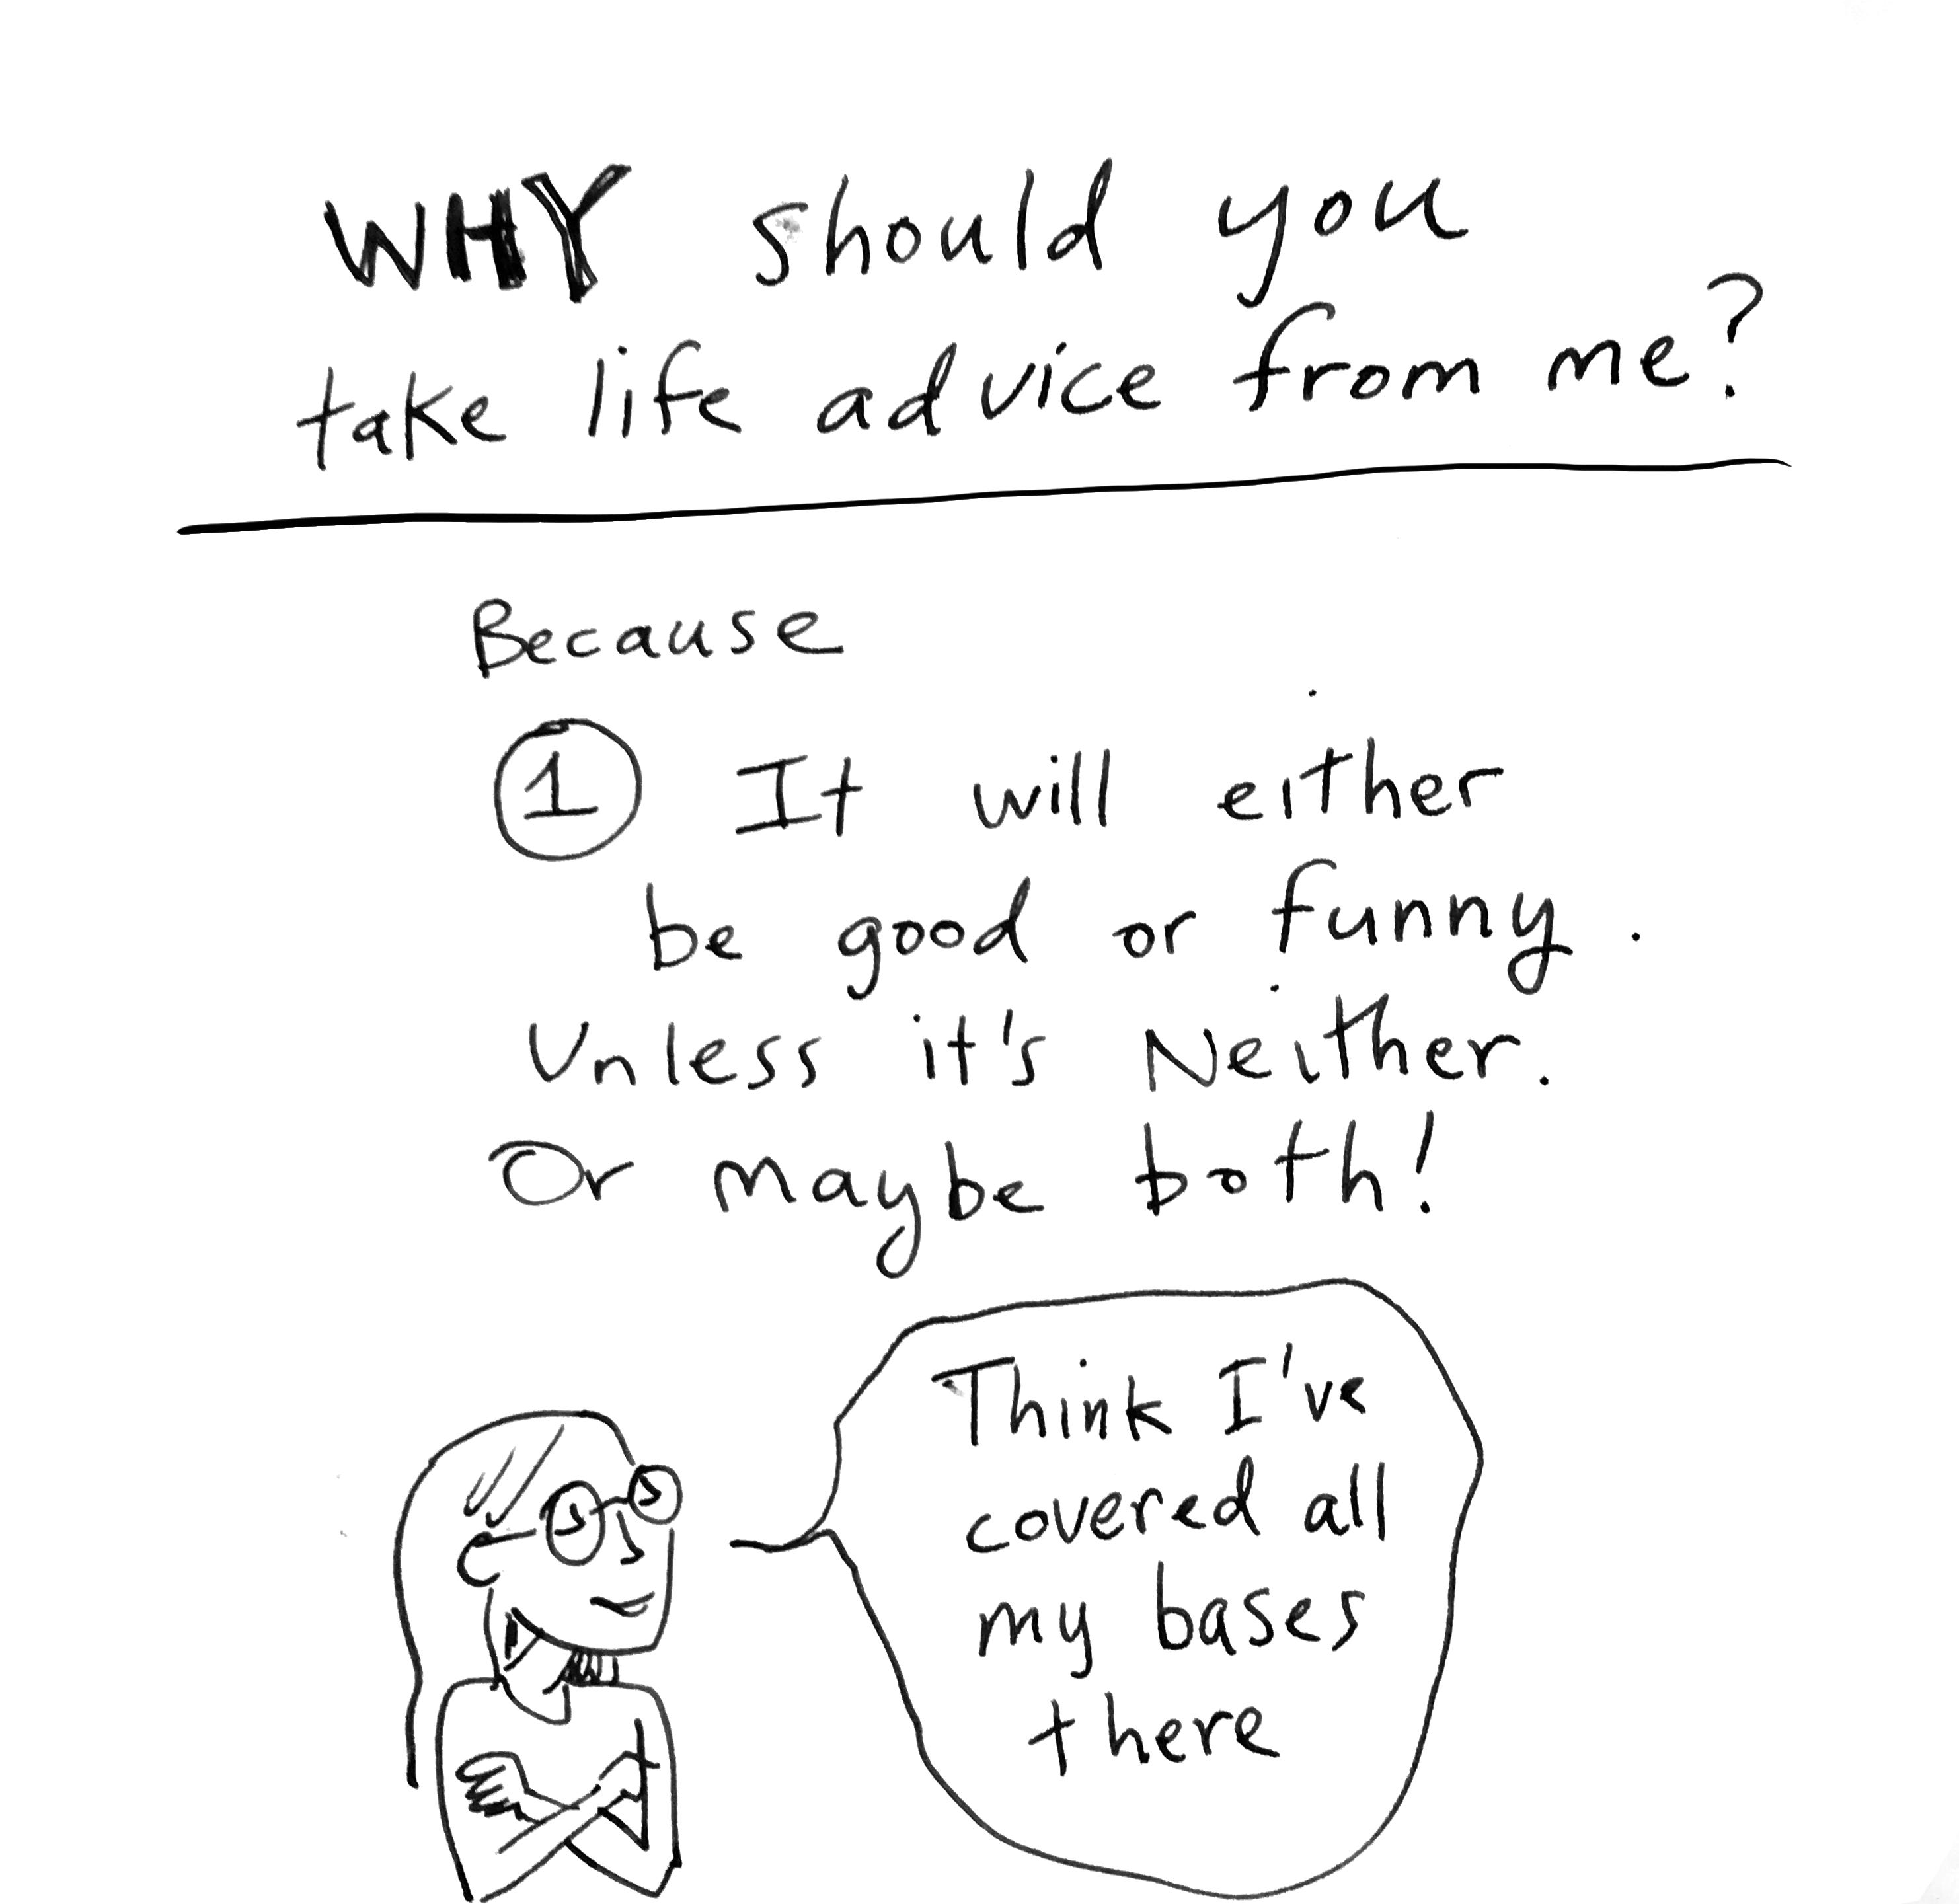 WHY should you
take life advice from me?
Because
1 It will either
be good or funny.
Unless it's Neither.
Or maybe both!
Think I've
covered all
my bases
there